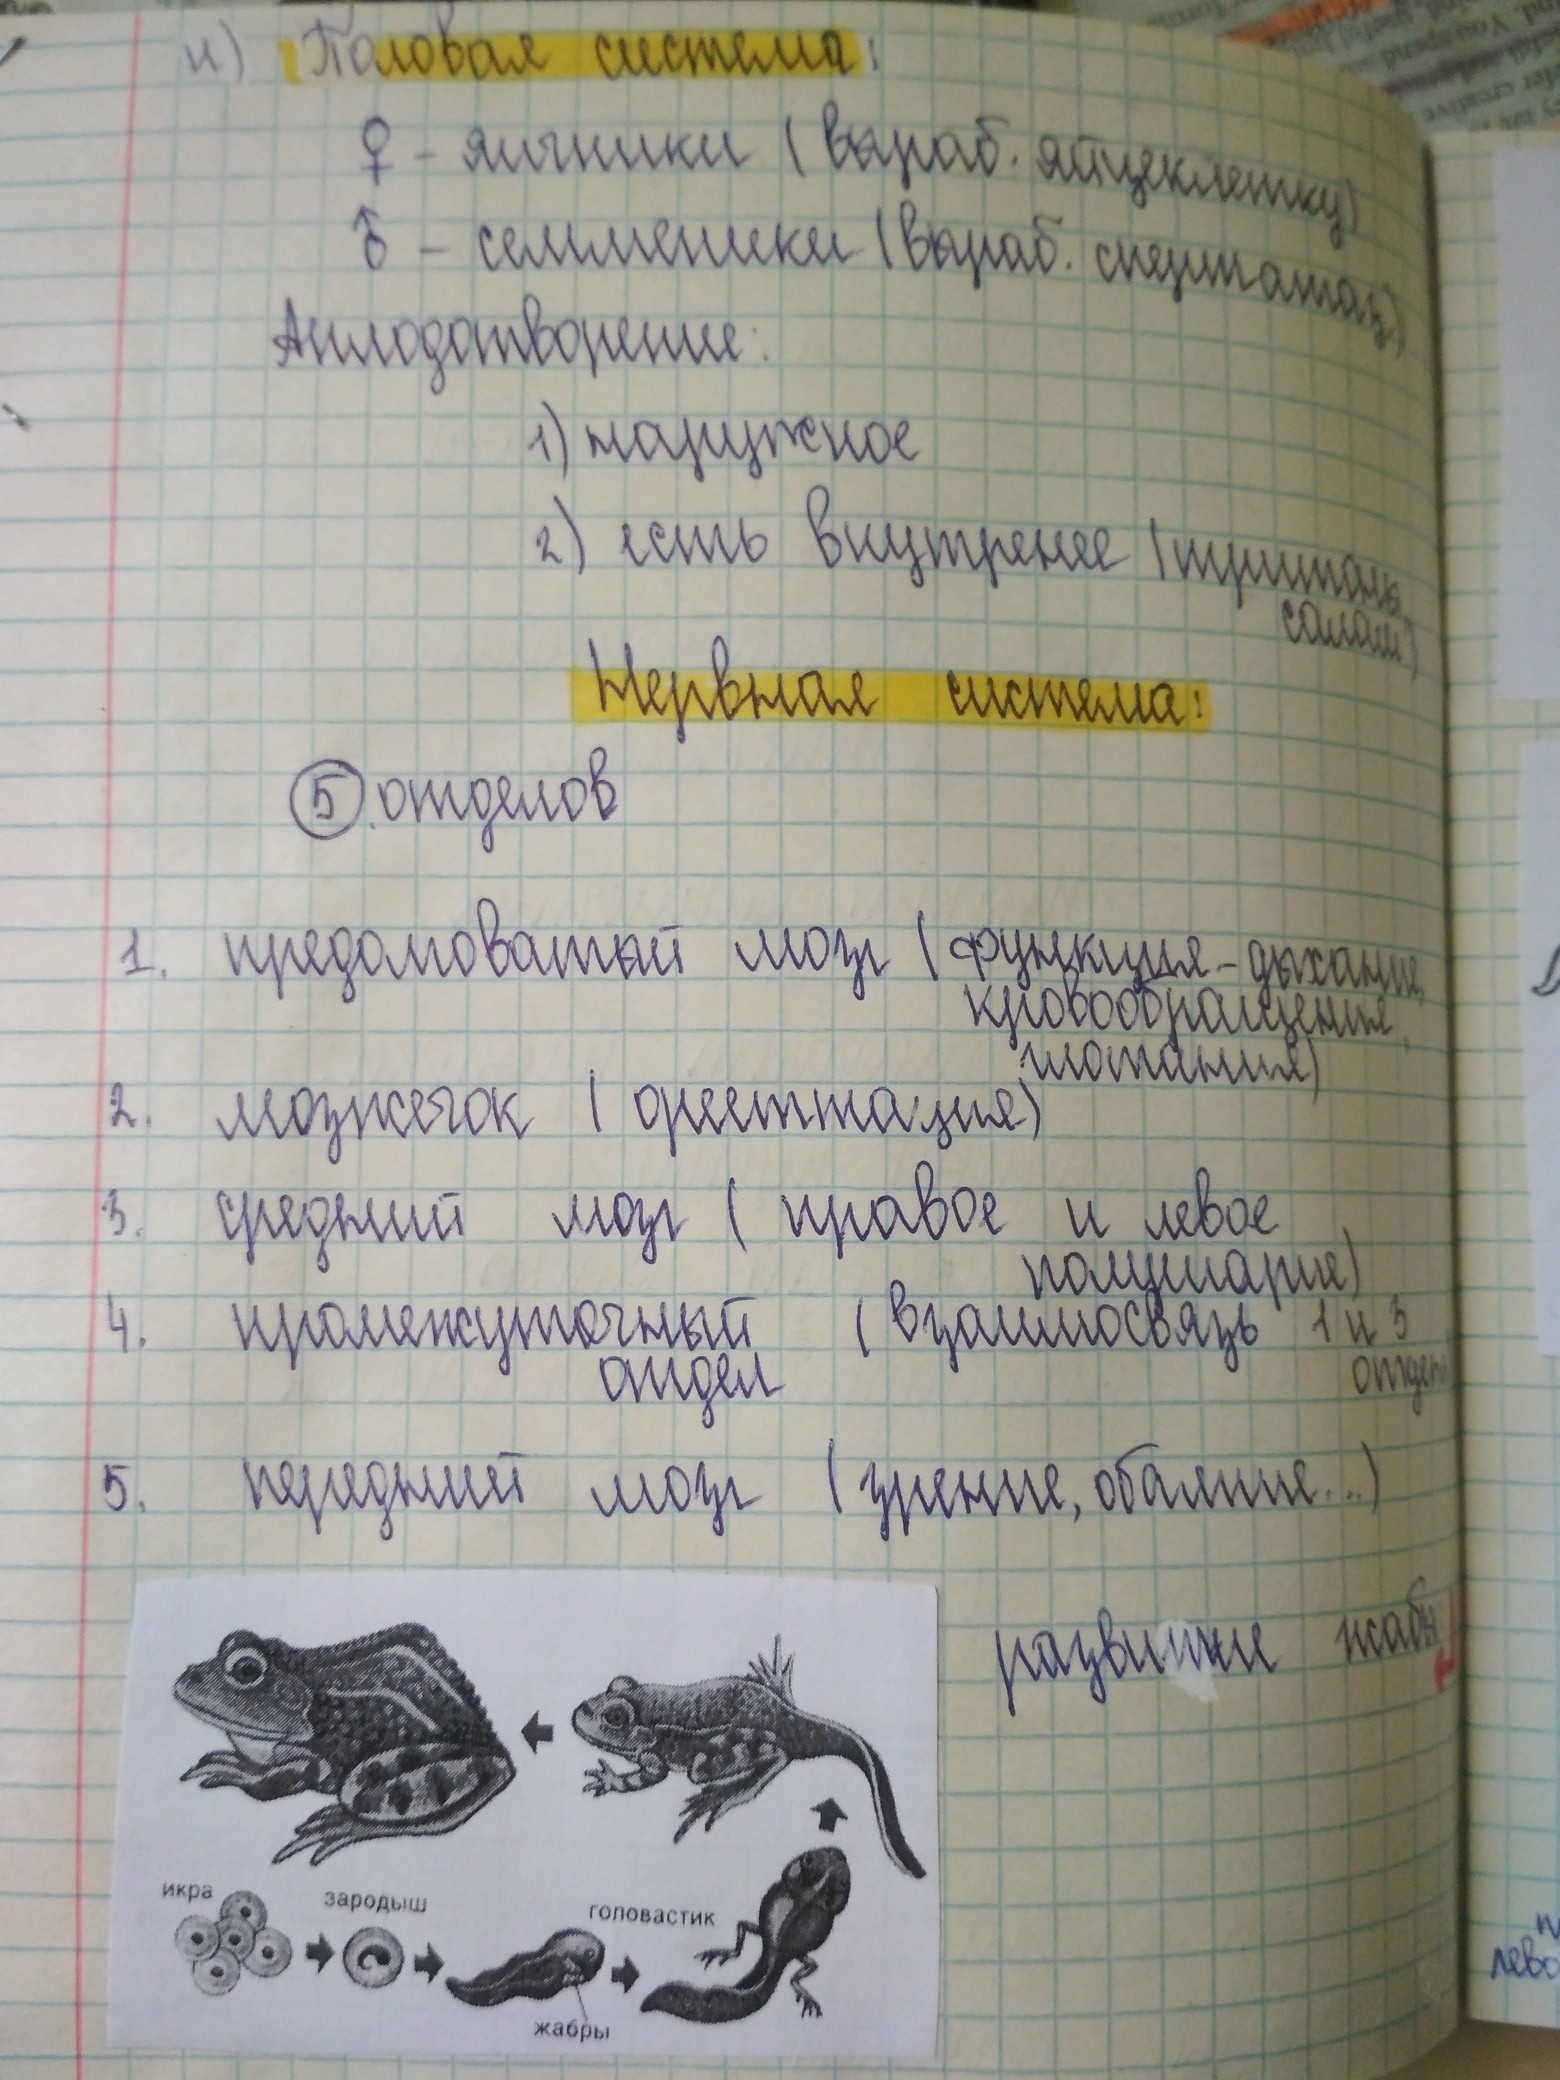 и) Половая система:
♀ - яичники (выраб. яйцеклетку)
♂ - семменики (выраб. сперматоз)
Оплодотворение:
1) наружное
2) есть внутренее (тритоны,
салам)
Нервная система:
5 отделов
1. предолговатый мозг (функция - дыхание,
кровообращения,
глотания)
2. мозжечок (ориентация)
3. средний мозг (правое и левое
полушарие)
4. промежуточный (взаимосвязь 1 и 3
отдел
5. передний мозг (зрение, обаяние...)
развитие жабы
икра
зародыш
головастик
жабры
лево